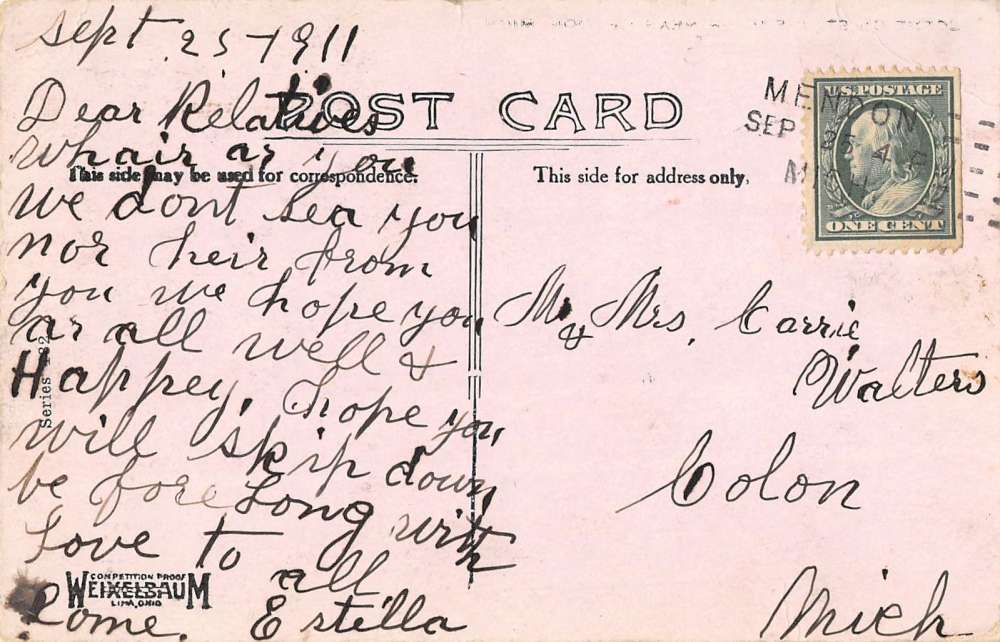 Sept 25-1911
Dear Relatives
whair ar you
we dont sea you
nor heir from
you we hope you
ar all well &
Happey, hope you
will skip down
be fore Long with
Love to all
Come. Estilla
POST CARD
This side may be used for correspondence.
This side for address only.
MENDON
SEP 25 4
U.S. POSTAGE
ONE CENT
Mr & Mrs. Carrie
Walters
Colon
Mich
Series
COMPETITION PROOF
WEIXELBAUM
LIMA, OHIO